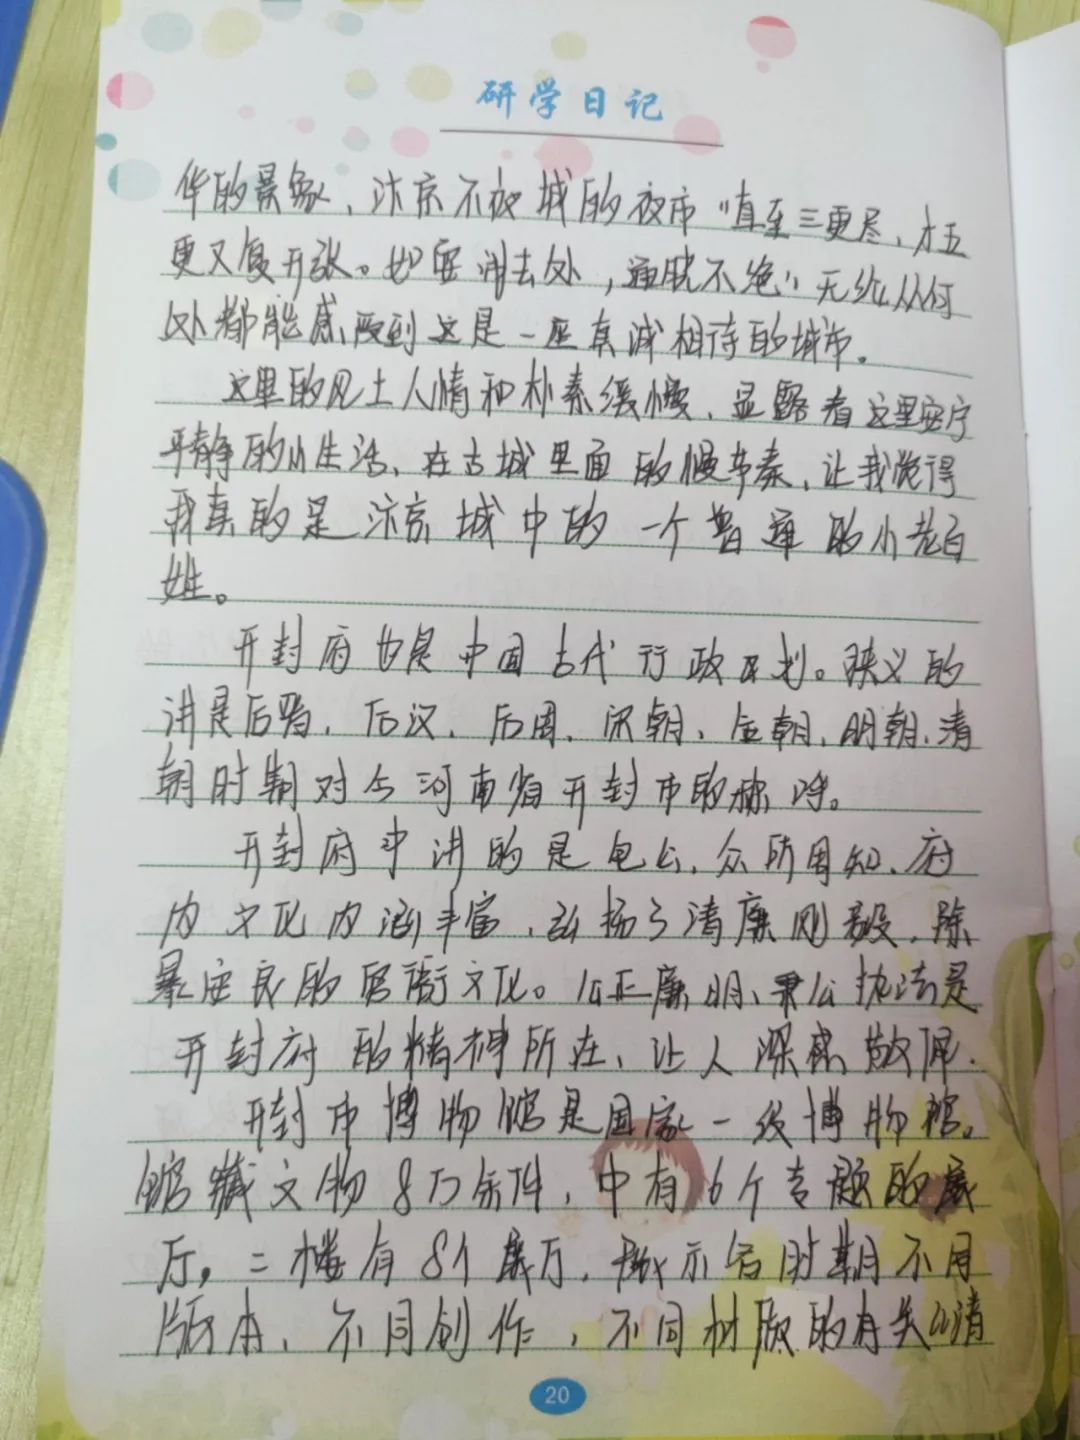 研学日记
华的景象、汴京不夜城的夜市“直至三更尽，才五
更又复开张。如要闹去处，通晓不绝”无论从何
处都能感受到这是一座真诚相待的城市。
这里的风土人情和朴素缓慢、显露着这里安宁
平静的小生活、在古城里面的慢节奏，让我觉得
我真的是汴京城中的一个普通的小老百
姓。
开封府也是中国古代行政区划。狭义的
讲是后晋、后汉、后周、宋朝、金朝、明朝、清
朝时期对今河南省开封市的称呼。
开封府中讲的是包公，众所周知、府
内文化内涵丰富，弘扬了清廉刚毅，除
暴安良的官衙文化。公正廉明、秉公执法是
开封府的精神所在、让人深感敬畏.
开封市博物馆是国家一级博物馆。
馆藏文物8万余件，中有6个专题的展
厅，二楼有8个展厅，展示各时期不同
版本、不同创作，不同材质的有关《清
20